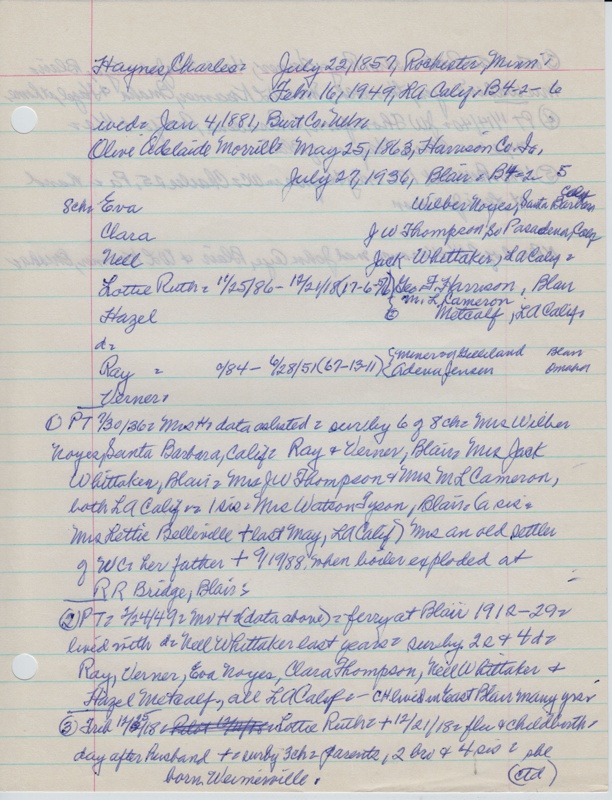 Haynes, Charles = July 22, 1857, Rochester, Minn :
Feb. 16, 1949, LA Calif = B4-2-6
wed = Jan 4, 1881, Burt Co Nebr
Olive Adelaide Morrill = May 25, 1863, Harrison Co Ia,
July 27, 1936, Blair = B4-2-5
8ch = Eva Wilber Noyes, Santa Barbara Calif
Clara J W Thompson, So Pasadena, Calif
Nell Jack Whittaker, LA Calif =
Lottie Ruth = 12/21/18 (17-6-92) Geo F Harrison, Blair
M. L. Cameron
Hazel Metcalf, LA Calif
d =
Ray = /84 - 6/28/51 (67-13-11) Minerva Gilliland Blair
Adena Jensen Omaha
Verner =
① PT 7/30/36 = Mrs H = data = surv by 6 of 8 ch = Mrs Wilber
Noyes, Santa Barbara, Calif = Ray & Verner, Blair = Mrs Jack
Whittaker, Blair = Mrs J W Thompson & Mrs M L Cameron,
both LA Calif = 1 sis = Mrs Watson Tyson, Blair = (a sis =
Mrs Lottie Belleville + last May, LA Calif) Mrs an old settler
of WC = her father + 9/19/88 when boiler exploded at
RR Bridge, Blair =
② PT = 2/24/49 = Mr H = (data above) = ferry at Blair 1912-29 =
lived with d = Nell Whittaker last years = surv by 2s & 4d =
Ray, Verner, Eva Noyes, Clara Thompson, Nell Whittaker &
Hazel Metcalf, all LA Calif = - CH lived in East Blair many yrs
③ Trib 12/25/18 = Lottie Ruth = + 12/21/18 = flu & childbirth =
day after husband + = surv by 3ch = parents, 2 bro & 4 sis = she
born .
(ctd)